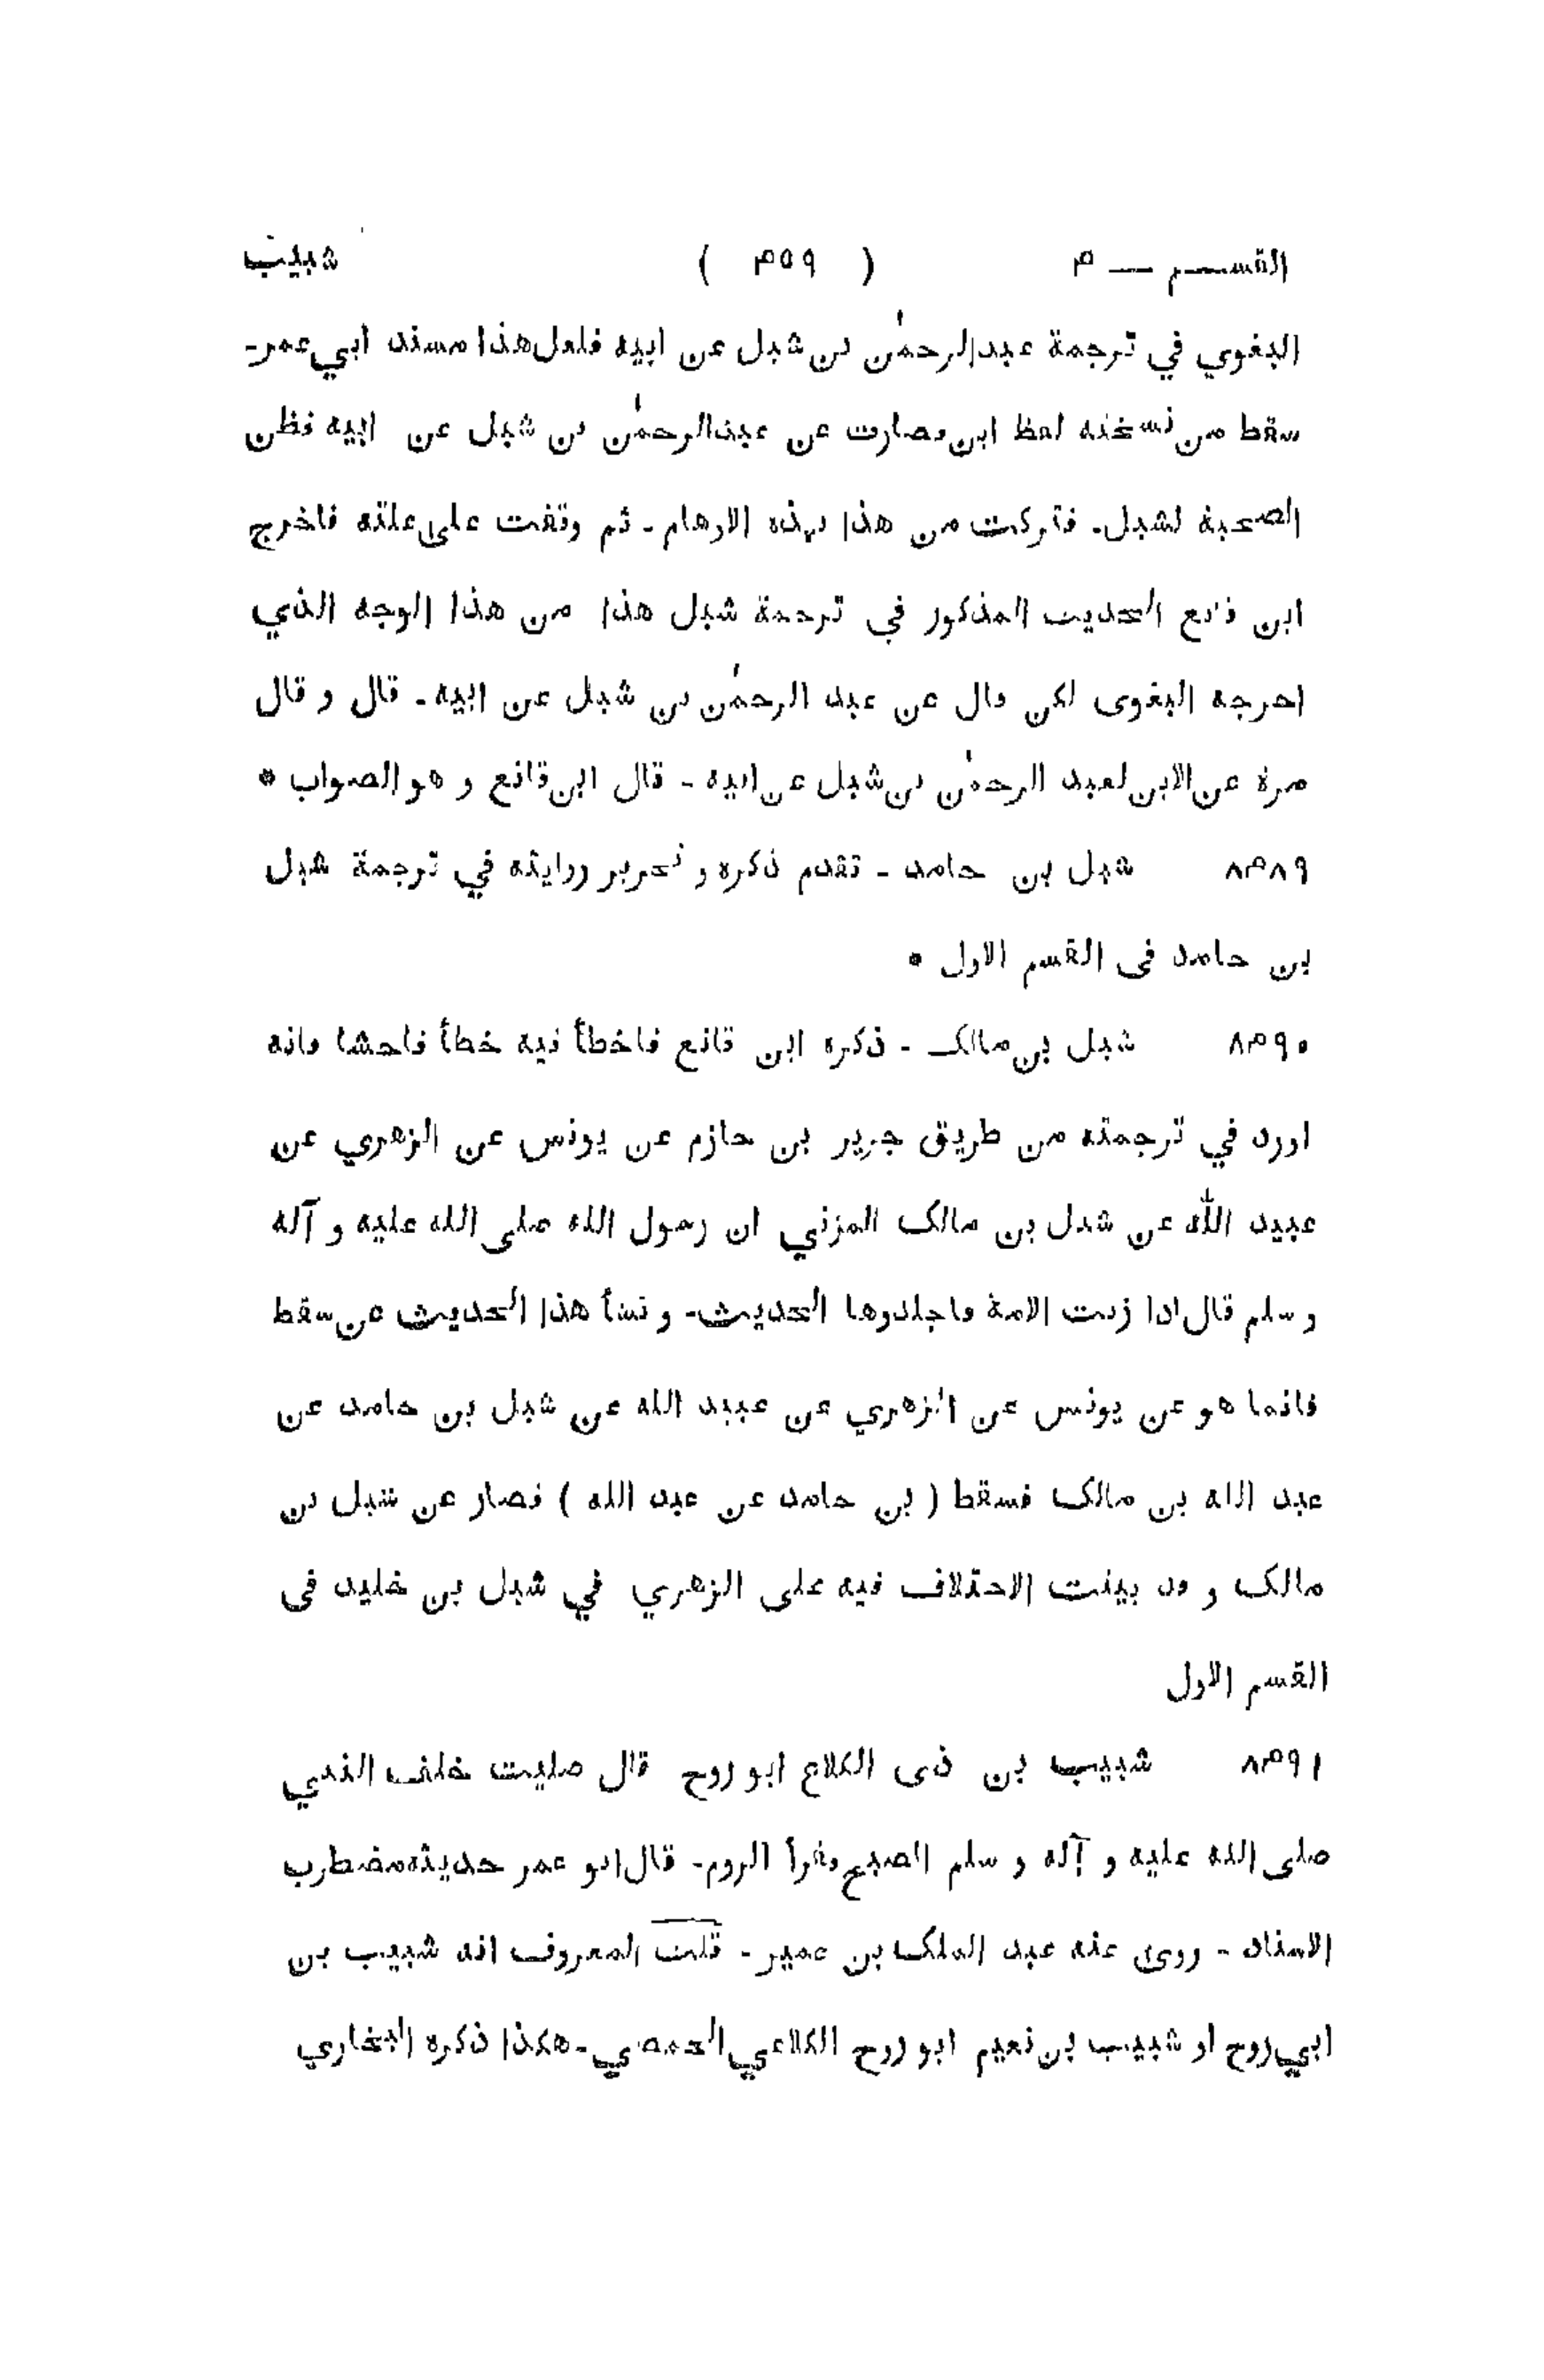 القسم — ۴ ( ۴۵۹ ) شبيب
البغوي في ترجمة عبد الرحمٰن بن شبل عن ابيه فلعل هذا مسند ابي عمر-
سقط من نسخته لفظ ابن فصارت عن عبد الرحمٰن بن شبل عن ابيه فظن
الصحبة لشبل- فتركت من هذا بهذه الاوهام - ثم وقفت على علته فاخرج
ابن قانع الحديث المذكور في ترجمة شبل هذا من هذا الوجه الذي
اخرجه البغوى لكن قال عن عبد الرحمٰن بن شبل عن ابيه - قال و قال
مرة عن الابن لعبد الرحمٰن بن شبل عن ابيه - قال ابن قانع و هو الصواب *
۸۴۸۹ شبل بن حامد - تقدم ذكره و تحرير روايته في ترجمة شبل
بن حامد فى القسم الاول *
۸۴۹۰ شبل بن مالک - ذكره ابن قانع فاخطأ فيه خطأ فاحشا فانه
اورد في ترجمته من طريق جرير بن حازم عن يونس عن الزهري عن
عبيد الله عن شبل بن مالک المزني ان رسول الله صلى الله عليه و آله
و سلم قال اذا زنت الامة فاجلدوها الحديث- و نشأ هذا الحديث عن سقط
فانما هو عن يونس عن الزهري عن عبيد الله عن شبل بن حامد عن
عبد الله بن مالک فسقط ( بن حامد عن عبد الله ) فصار عن شبل بن
مالک و قد بينت الاختلاف فيه على الزهري في شبل بن خليد فى
القسم الاول
۸۴۹۱ شبيب بن ذى الكلاع ابو روح قال صليت خلف النبي
صلى الله عليه و آله و سلم الصبح فقرأ الروم- قال ابو عمر حديثه مضطرب
الاسناد - روى عنه عبد الملک بن عمير - قلت المعروف انه شبيب بن
ابي روح او شبيب بن نعيم ابو روح الكلاعي الحمصي- هكذا ذكره البخاري